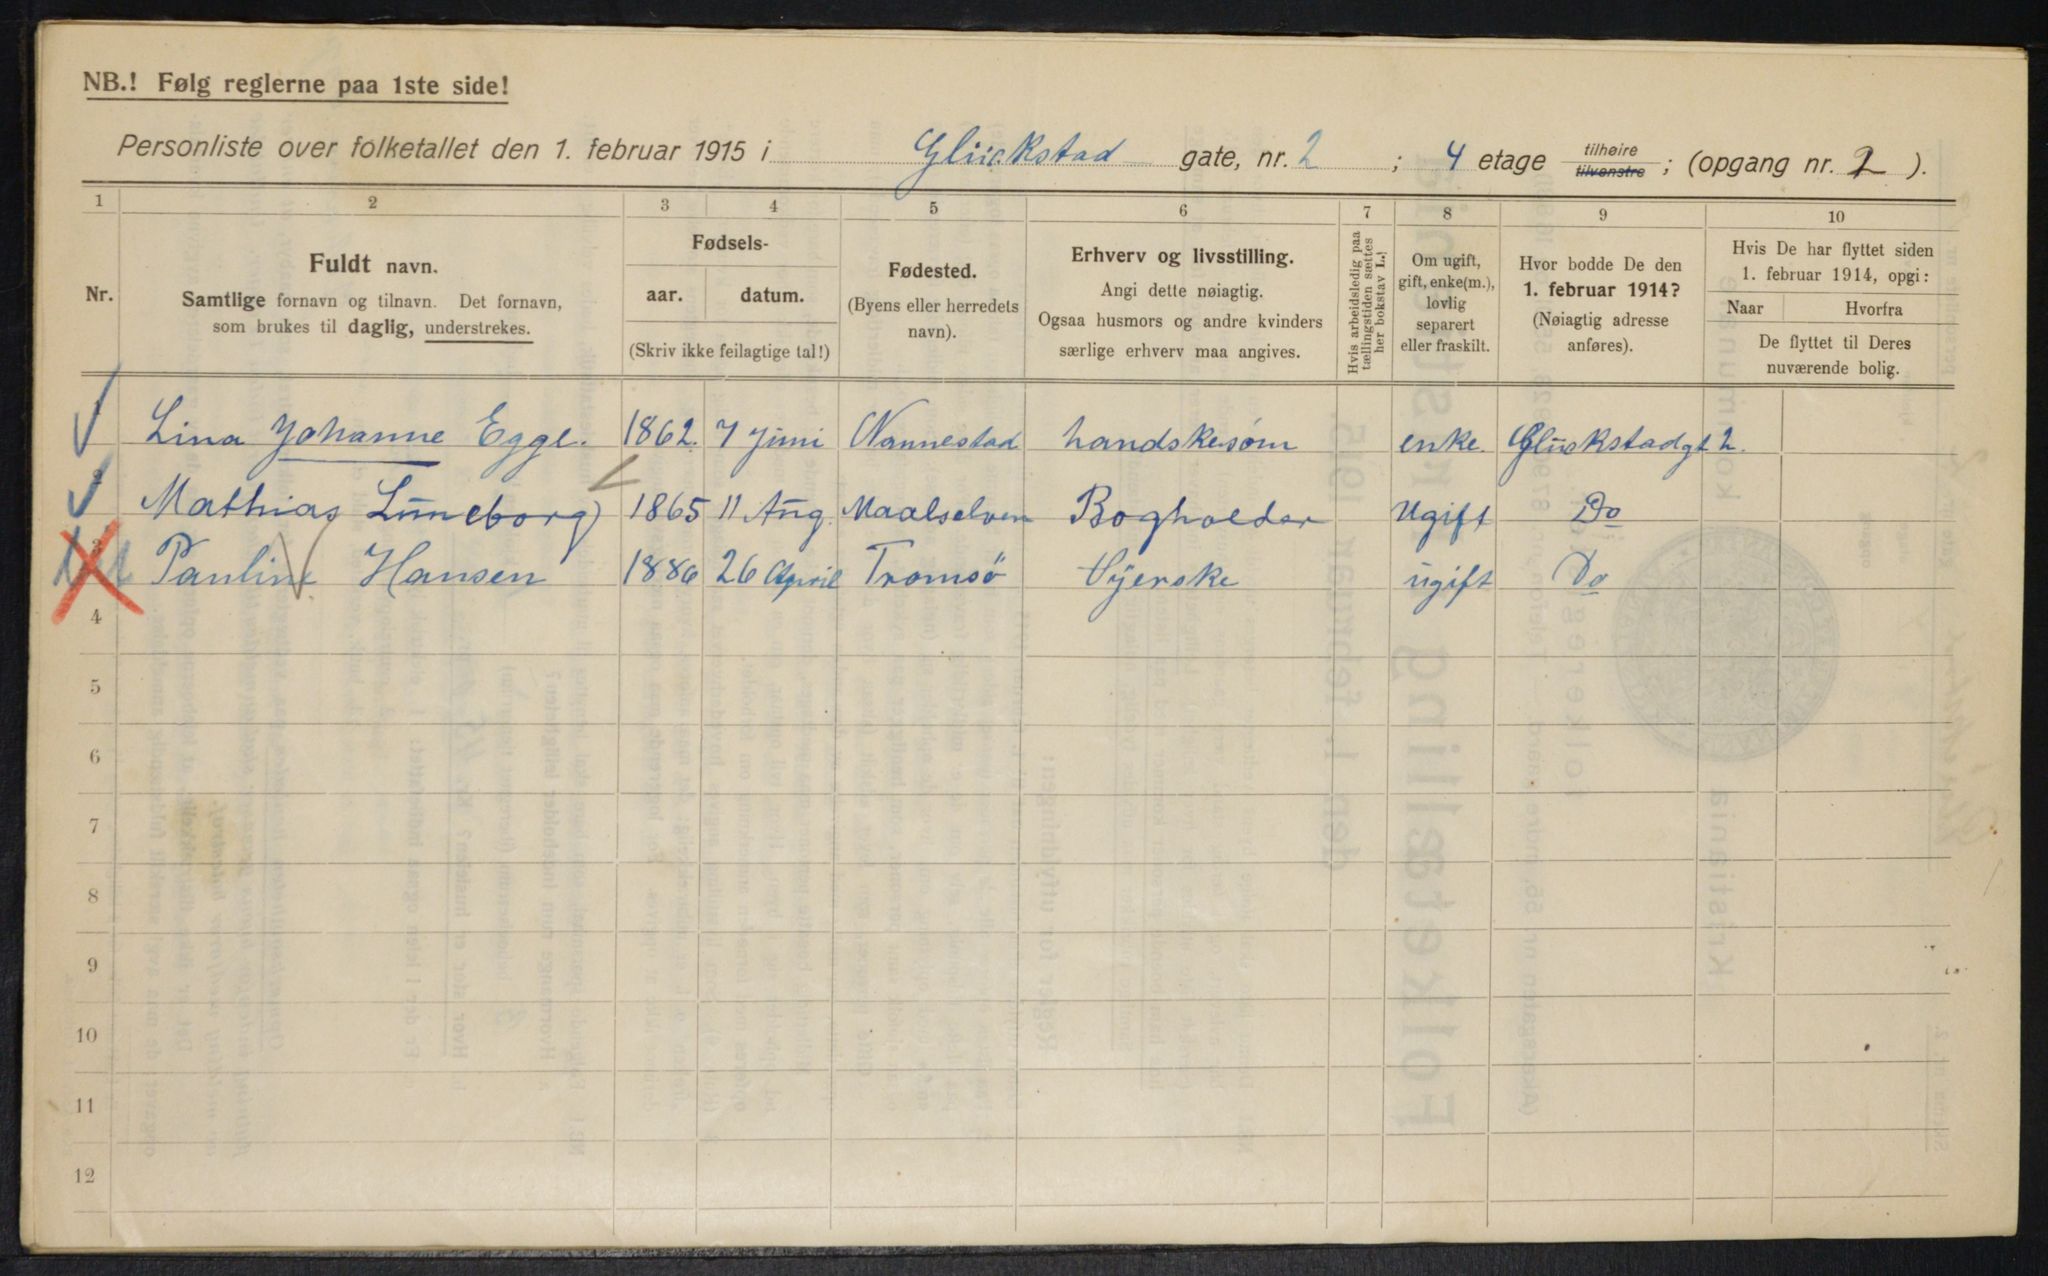 NB.! Følg reglerne paa 1ste side!
Personliste over folketallet den 1. februar 1915 i Glückstad gate, nr. 2 ; 4 etage tilhøire tilvenstre ; (opgang nr. 2 ).
1 2 3 4 5 6 7 8 9 10
Nr.
Fuldt navn.
Samtlige fornavn og tilnavn. Det fornavn,
som brukes til daglig, understrekes.
Fødsels-
aar. datum.
(Skriv ikke feilagtige tal!)
Fødested.
(Byens eller herredets
navn).
Erhverv og livsstilling.
Angi dette nøiagtig.
Ogsaa husmors og andre kvinders
særlige erhverv maa angives.
Hvis arbeidsledig paa
tællingstiden sættes
her bokstav L.!
Om ugift,
gift, enke(m.),
lovlig
separert
eller fraskilt.
Hvor bodde De den
1. februar 1914?
(Nøiagtig adresse
anføres).
Hvis De har flyttet siden
1. februar 1914, opgi:
Naar Hvorfra
De flyttet til Deres
nuværende bolig.
1 Lina Johanne Egge. 1862. 7 juni Nannestad handskesøm enke. Glückstadgt 2.
2 Mathias Lüneborg 1865 11 Aug. Maalselven Bogholder Ugift Do
3 Pauline Hansen 1886 26 April Tromsö Syerske ugift Do
4
5
6
7
8
9
10
11
12